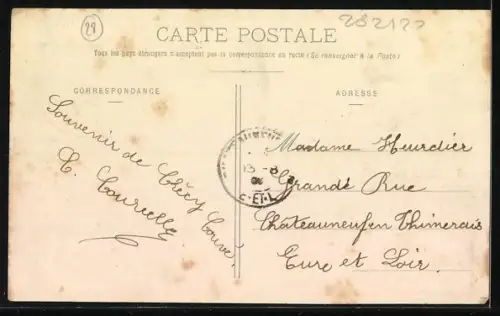 28
282122
CARTE POSTALE
Tous les pays étrangers n'acceptent pas la correspondance au recto (Se renseigner à la Poste)
CORRESPONDANCE
Souvenir de Crécy Couvé,
C. Courcelle
ADRESSE
Madame Heurdier
Grande Rue
Châteauneuf en Thimerais
Eure et Loir.